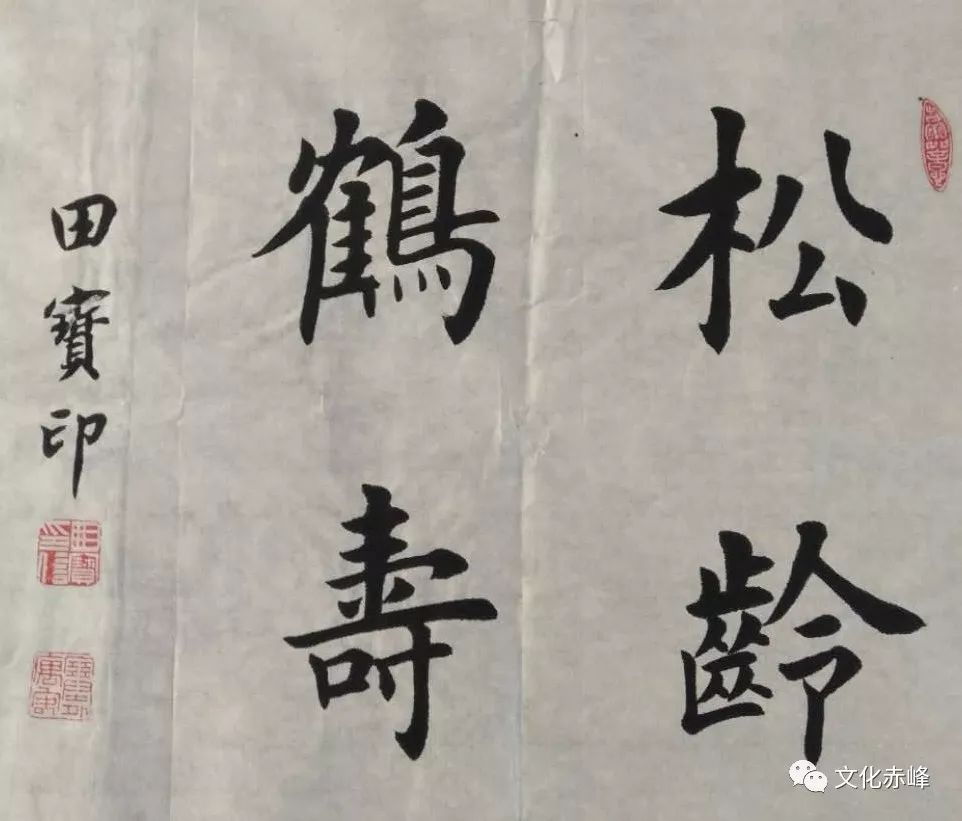 松齡
鶴壽
田寶印
文化赤峰